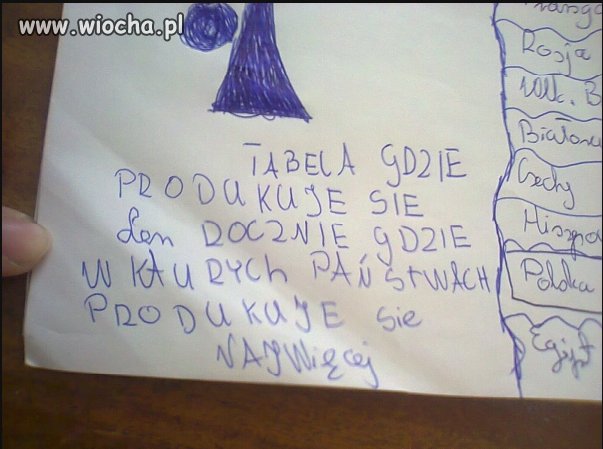 www.wiocha.pl
TABELA GDZIE
PRODUKUJE SIE
len ROCZNIE GDZIE
W KTURYCH PAŃSTWACH
PRODUKUJE sie
NAJWięcej
Rosja
Wlk. B
Białoru
Czechy
Hiszpa
Polska
Egipt